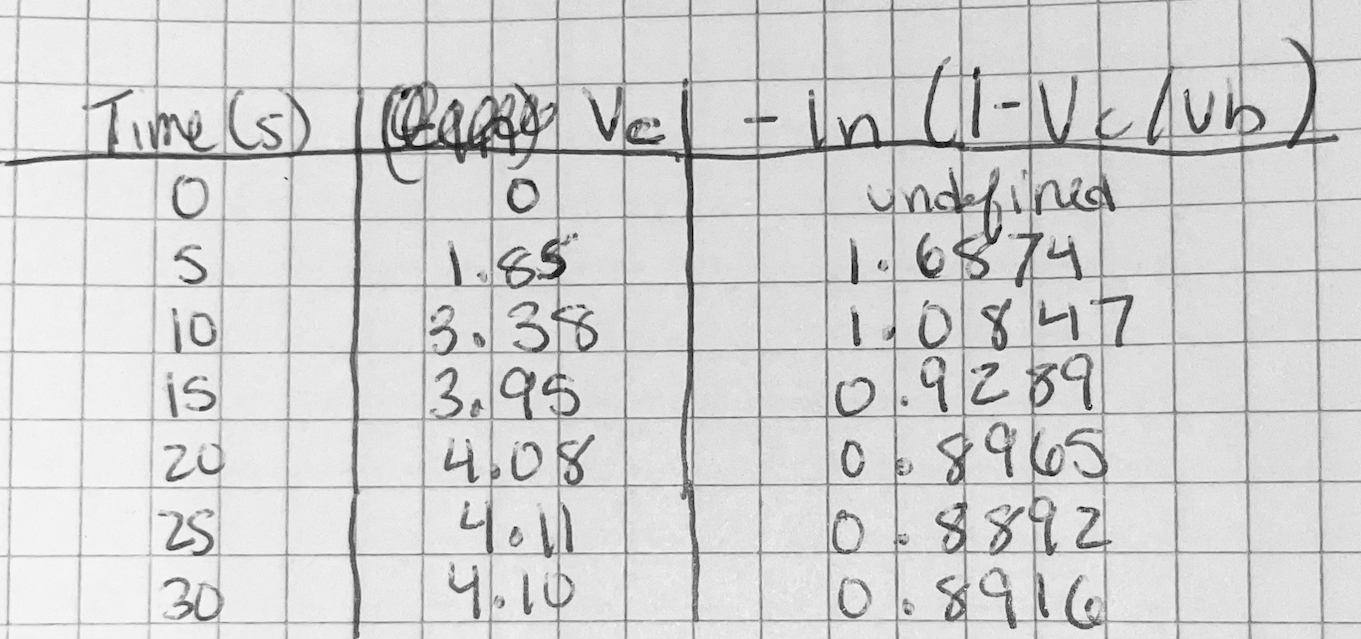 Time (s) Vc -ln (1-Vc/Vb)
0 0 undefined
5 1.85 1.6874
10 3.38 1.0847
15 3.95 0.9289
20 4.08 0.8965
25 4.11 0.8892
30 4.10 0.8916